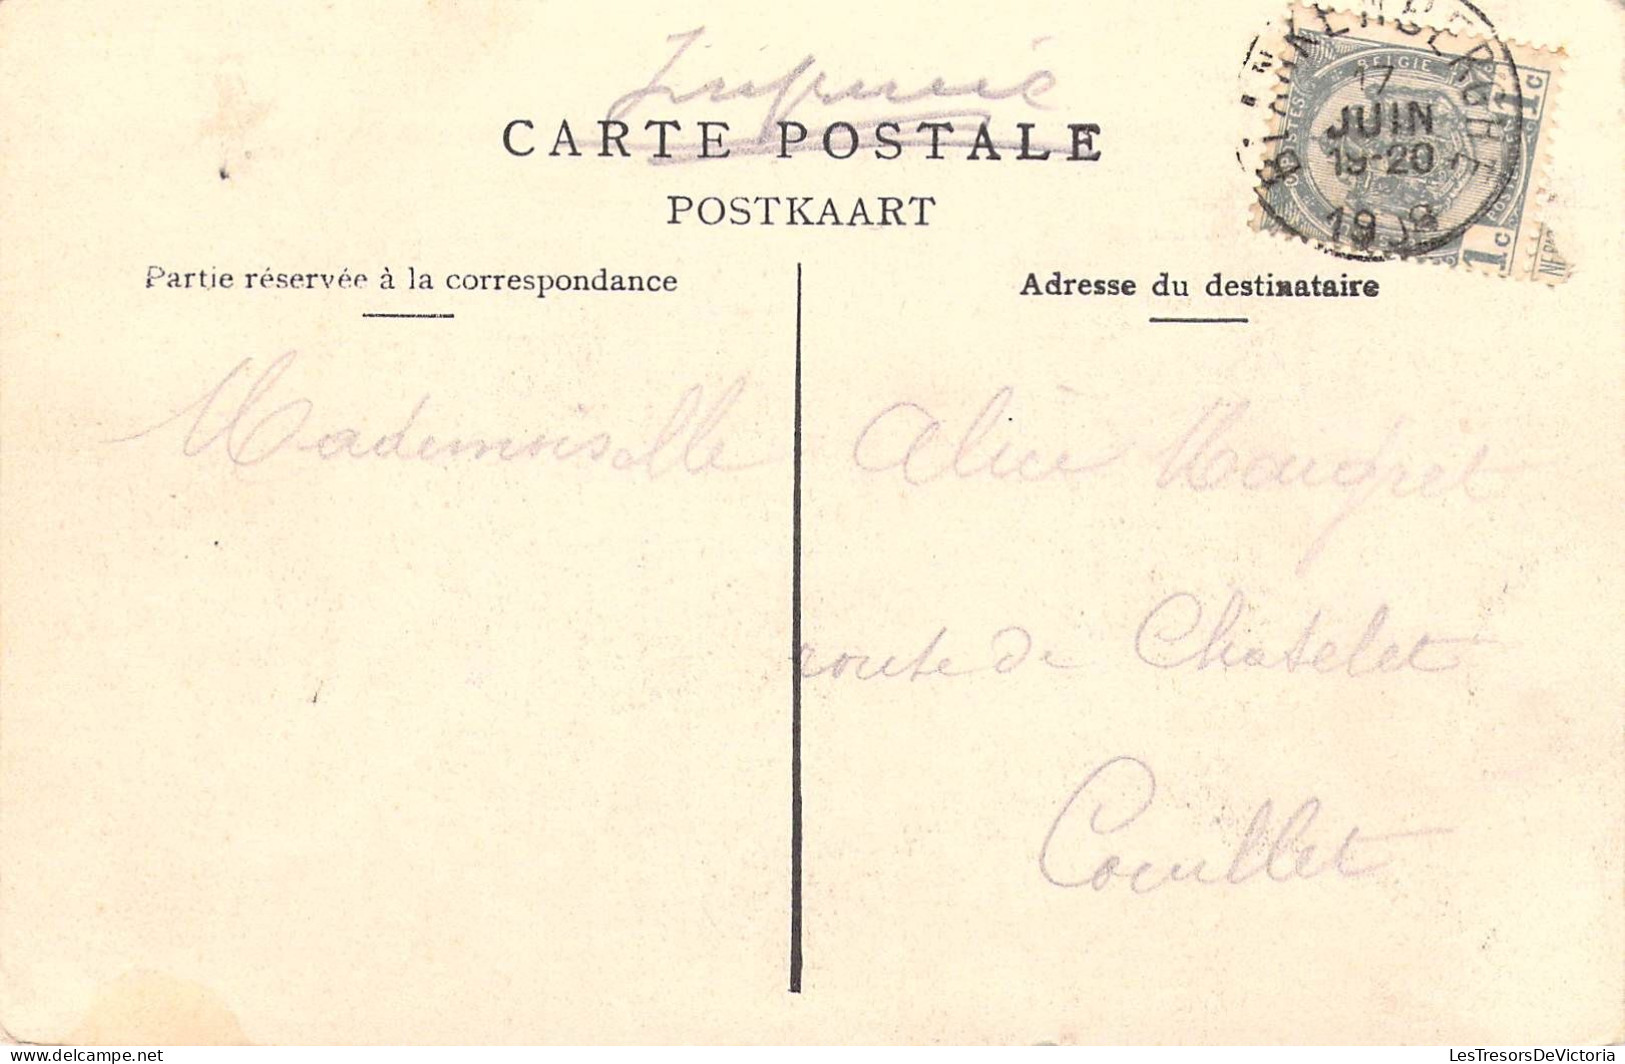 Imprimé
CARTE POSTALE
POSTKAART
BLANKENBERGHE
17
JUIN
19-20
1908
BELGIE
1c
1c
Partie réservée à la correspondance
Adresse du destinataire
Mademoiselle Alice Maigret
route de Chatelet
Couillet
delcampe.net
LesTresorsDeVictoria